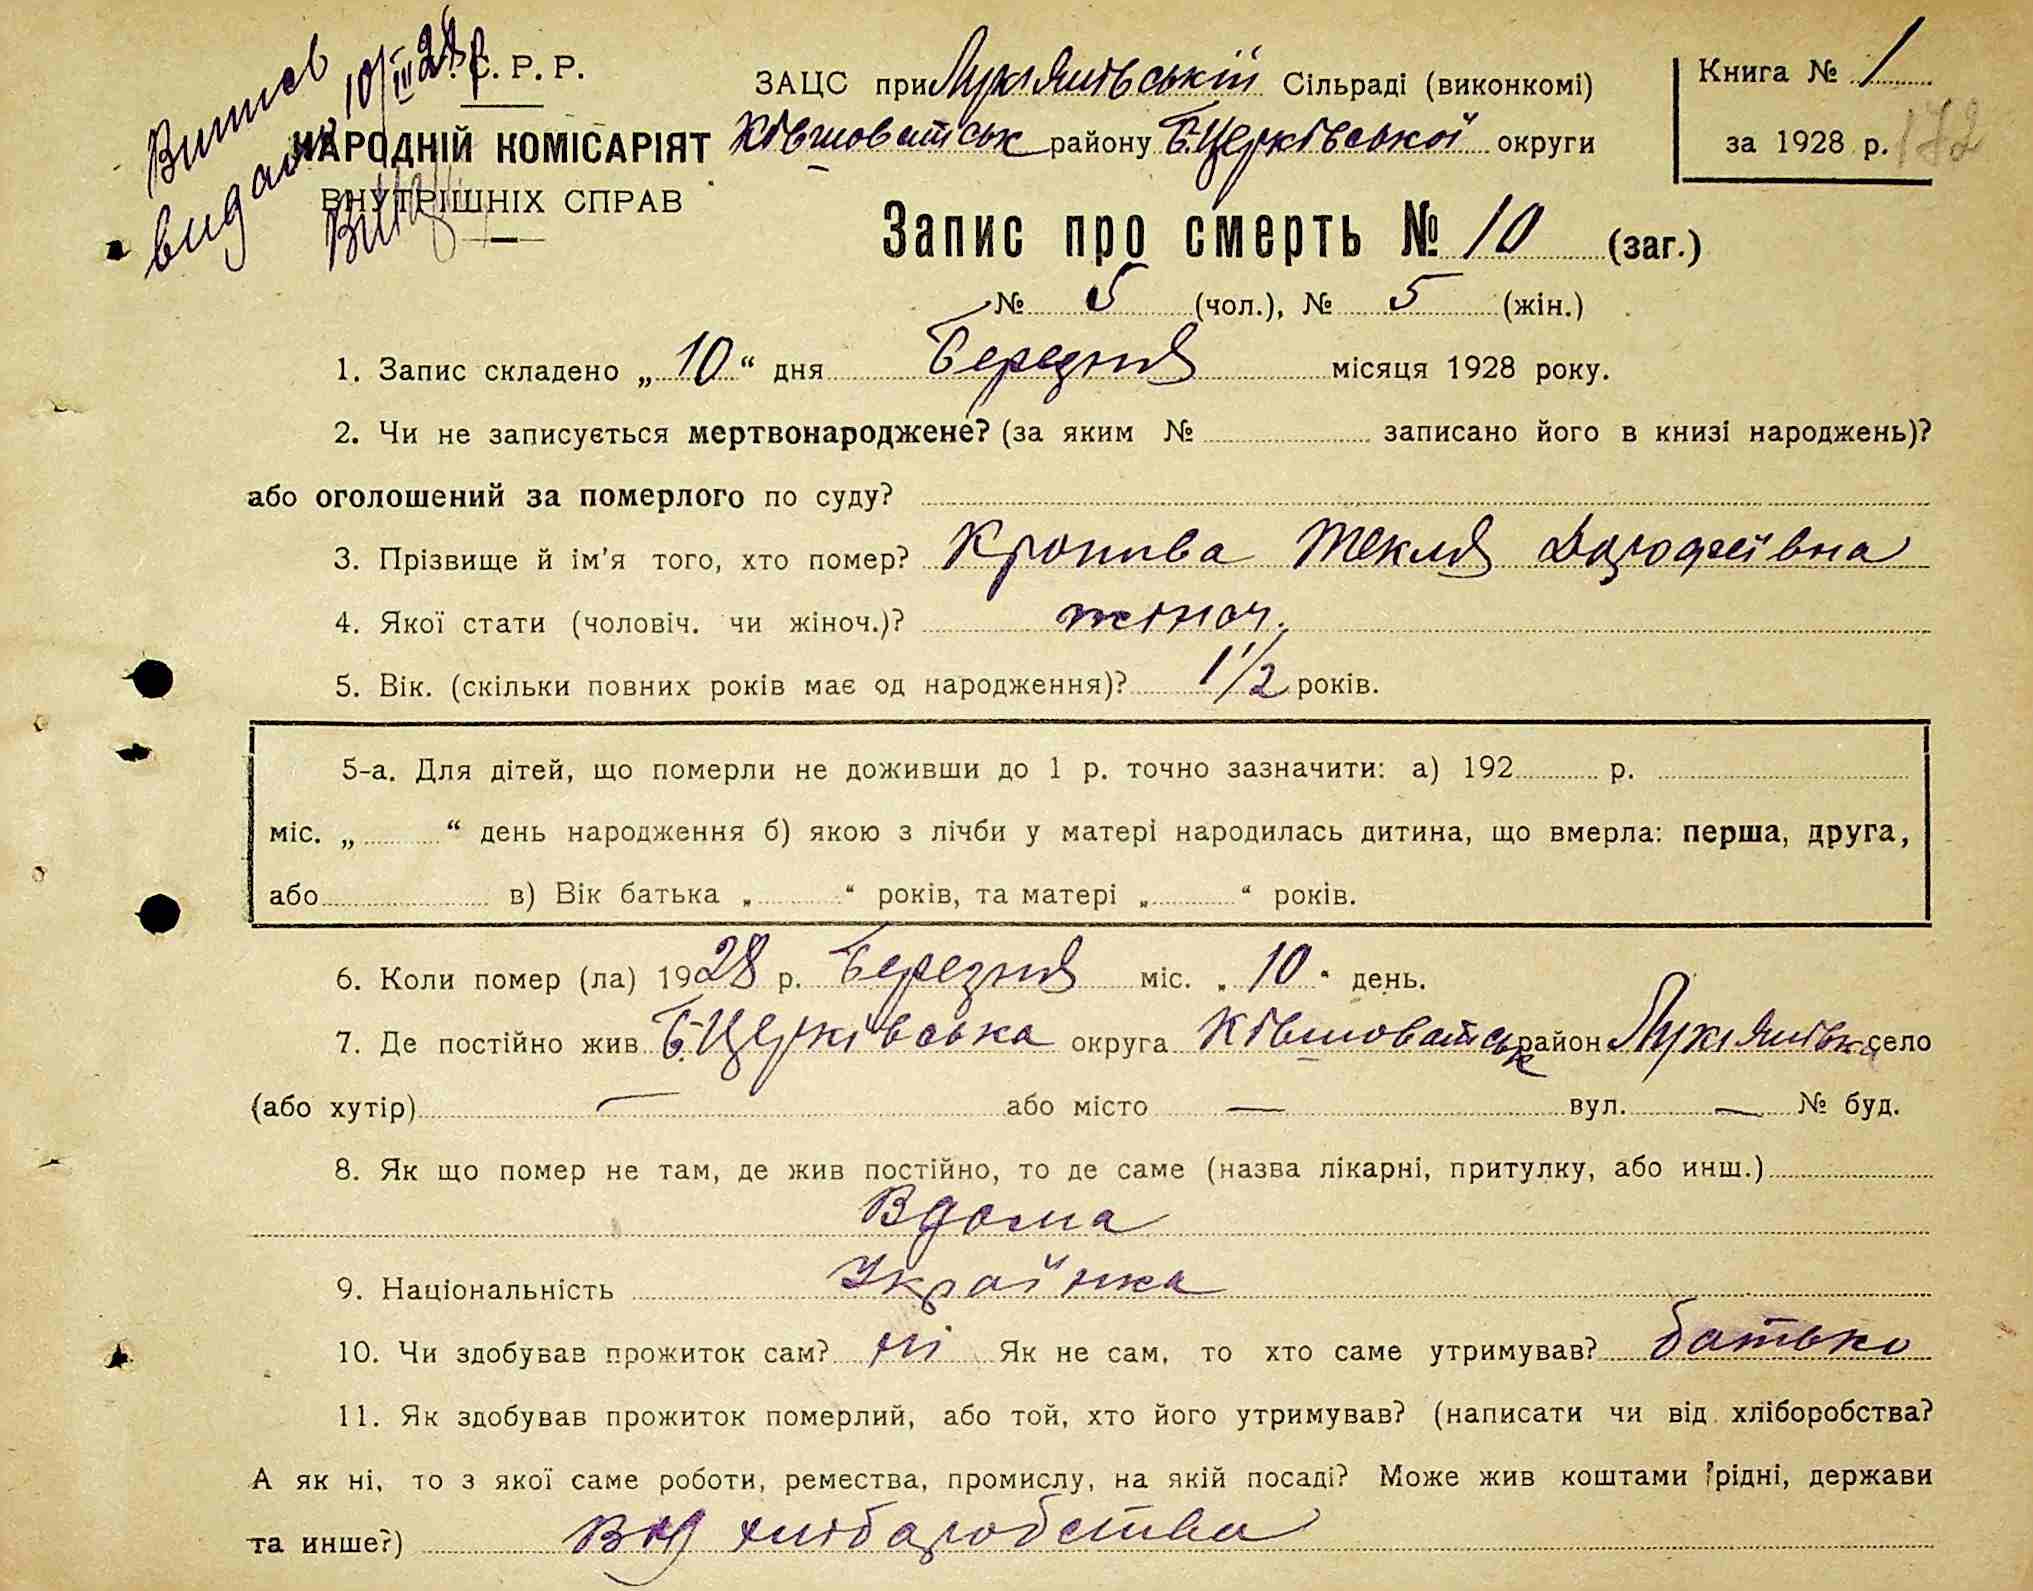 Витись
видано 10/III 28 р
С. Р. Р.
НАРОДНІЙ КОМІСАРІЯТ
ВНУТРІШНІХ СПРАВ
ЗАЦС при Лукіянівській Сільраді (виконкомі)
Ківшоватськ району Б.Церківської округи
Книга № 1
за 1928 р. 172
Запис про смерть № 10 (заг.)
№ 5 (чол.), № 5 (жін.)
1. Запис складено „10“ дня Березня місяця 1928 року.
2. Чи не записується мертвонароджене? (за яким № записано його в книзі народжень)?
або оголошений за померлого по суду?
3. Прізвище й ім'я того, хто помер? Кропива Текля Дорофеївна
4. Якої стати (чоловіч. чи жіноч.)? жіноч.
5. Вік. (скільки повних років має од народження)? 1 1/2 років.
5-а. Для дітей, що померли не доживши до 1 р. точно зазначити: а) 192 р.
міс. „ “ день народження б) якою з лічби у матері народилась дитина, що вмерла: перша, друга,
або в) Вік батька „ “ років, та матері „ “ років.
6. Коли помер (ла) 1928 р. Березня міс. „10“ день.
7. Де постійно жив Б.Церківська округа Ківшоватськ район Лукіянівка село
(або хутір) — або місто — вул. — № буд.
8. Як що помер не там, де жив постійно, то де саме (назва лікарні, притулку, або инш.)
Вдома
9. Національність Українка
10. Чи здобував прожиток сам? ні Як не сам, то хто саме утримував? батько
11. Як здобував прожиток померлий, або той, хто його утримував? (написати чи від хліборобства?
А як ні, то з якої саме роботи, ремества, промислу, на якій посаді? Може жив коштами рідні, держави
та инше?) Від хліборобства